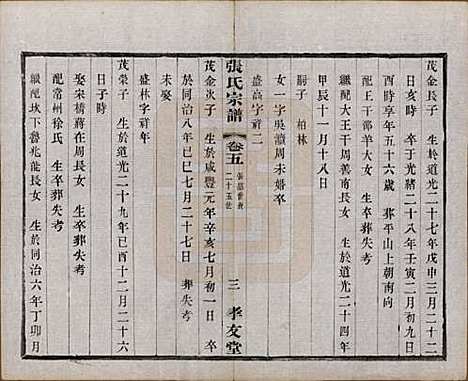 茂金長子 生於道光二十七年戊申三月二十二
日亥時 卒於光緒二十八年壬寅二月初九日
酉時享年五十六歲 葬平山上朝南向
配王干部羊大女 生卒葬失考
繼配大王干周善南長女 生於道光二十四年
甲辰十一月十八日
嗣子 柏林
女一字吳瀆周未婚卒
盛高字祥二
張氏宗譜 卷五 二十五世 三 孝友堂
茂金次子 生於咸豐元年辛亥七月初一日 卒
於同治八年己巳七月二十七日 葬失考
未娶
盛林字祥年
茂榮子 生於道光二十九年己酉十二月二十六
日子時
娶宋碕蔣在周長女 生卒葬失考
配常州徐氏 生卒葬失考
繼配坎下魯兆龍長女 生於同治六年丁卯月